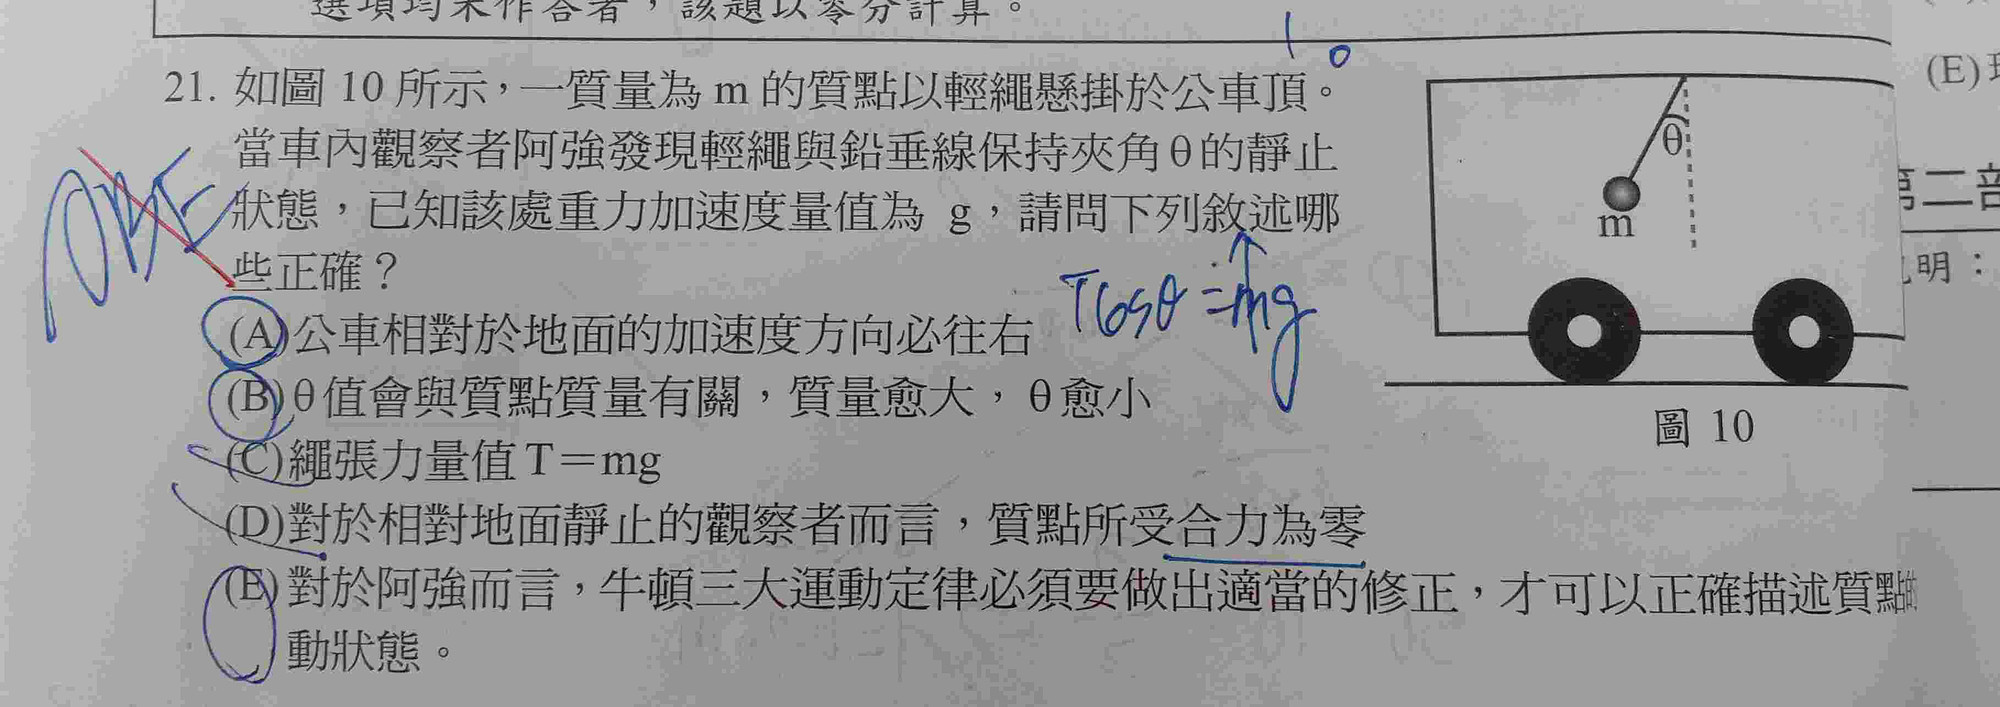 選項均未作答者，該題以零分計算。
21. 如圖 10 所示，一質量為 m 的質點以輕繩懸掛於公車頂。
當車內觀察者阿強發現輕繩與鉛垂線保持夾角θ的靜止
狀態，已知該處重力加速度量值為 g，請問下列敘述哪
些正確？
(A)公車相對於地面的加速度方向必往右
(B)θ值會與質點質量有關，質量愈大，θ愈小
(C)繩張力量值T＝mg
(D)對於相對地面靜止的觀察者而言，質點所受合力為零
(E)對於阿強而言，牛頓三大運動定律必須要做出適當的修正，才可以正確描述質點的
動狀態。
Tcosθ=mg
ABE
θ
m
圖 10
(E)
第二部
明：